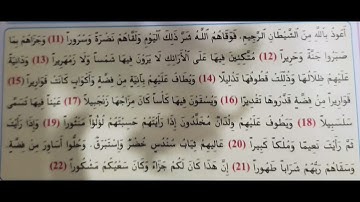 أعوذ بالله من الشيطان الرجيم، فَوَقَاهُمُ اللَّهُ شَرَّ ذَلِكَ الْيَوْمِ وَلَقَّاهُمْ نَضْرَةً وَسُرُوراً (11) وَجَزَاهُمْ بِمَا
صَبَرُوا جَنَّةً وَحَرِيراً (12) مُتَّكِئِينَ فِيهَا عَلَى الْأَرَائِكِ لَا يَرَوْنَ فِيهَا شَمْساً وَلَا زَمْهَرِيراً (13) وَدَانِيَةً
عَلَيْهِمْ ظِلَالُهَا وَذُلِّلَتْ قُطُوفُهَا تَذْلِيلًا (14) وَيُطَافُ عَلَيْهِمْ بِآنِيَةٍ مِنْ فِضَّةٍ وَأَكْوَابٍ كَانَتْ قَوَارِيرَا (15)
قَوَارِيرَ مِنْ فِضَّةٍ قَدَّرُوهَا تَقْدِيراً (16) وَيُسْقَوْنَ فِيهَا كَأْساً كَانَ مِزَاجُهَا زَنْجَبِيلًا (17) عَيْناً فِيهَا تُسَمَّى
سَلْسَبِيلًا (18) وَيَطُوفُ عَلَيْهِمْ وِلْدَانٌ مُخَلَّدُونَ إِذَا رَأَيْتَهُمْ حَسِبْتَهُمْ لُؤْلُؤاً مَنْثُوراً (19) وَإِذَا رَأَيْتَ
ثَمَّ رَأَيْتَ نَعِيماً وَمُلْكاً كَبِيراً (20) عَالِيَهُمْ ثِيَابُ سُنْدُسٍ خُضْرٌ وَإِسْتَبْرَقٌ، وَحُلُّوا أَسَاوِرَ مِنْ فِضَّةٍ،
وَسَقَاهُمْ رَبُّهُمْ شَرَاباً طَهُوراً (21) إِنَّ هَذَا كَانَ لَكُمْ جَزَاءً وَكَانَ سَعْيُكُمْ مَشْكُوراً (22)